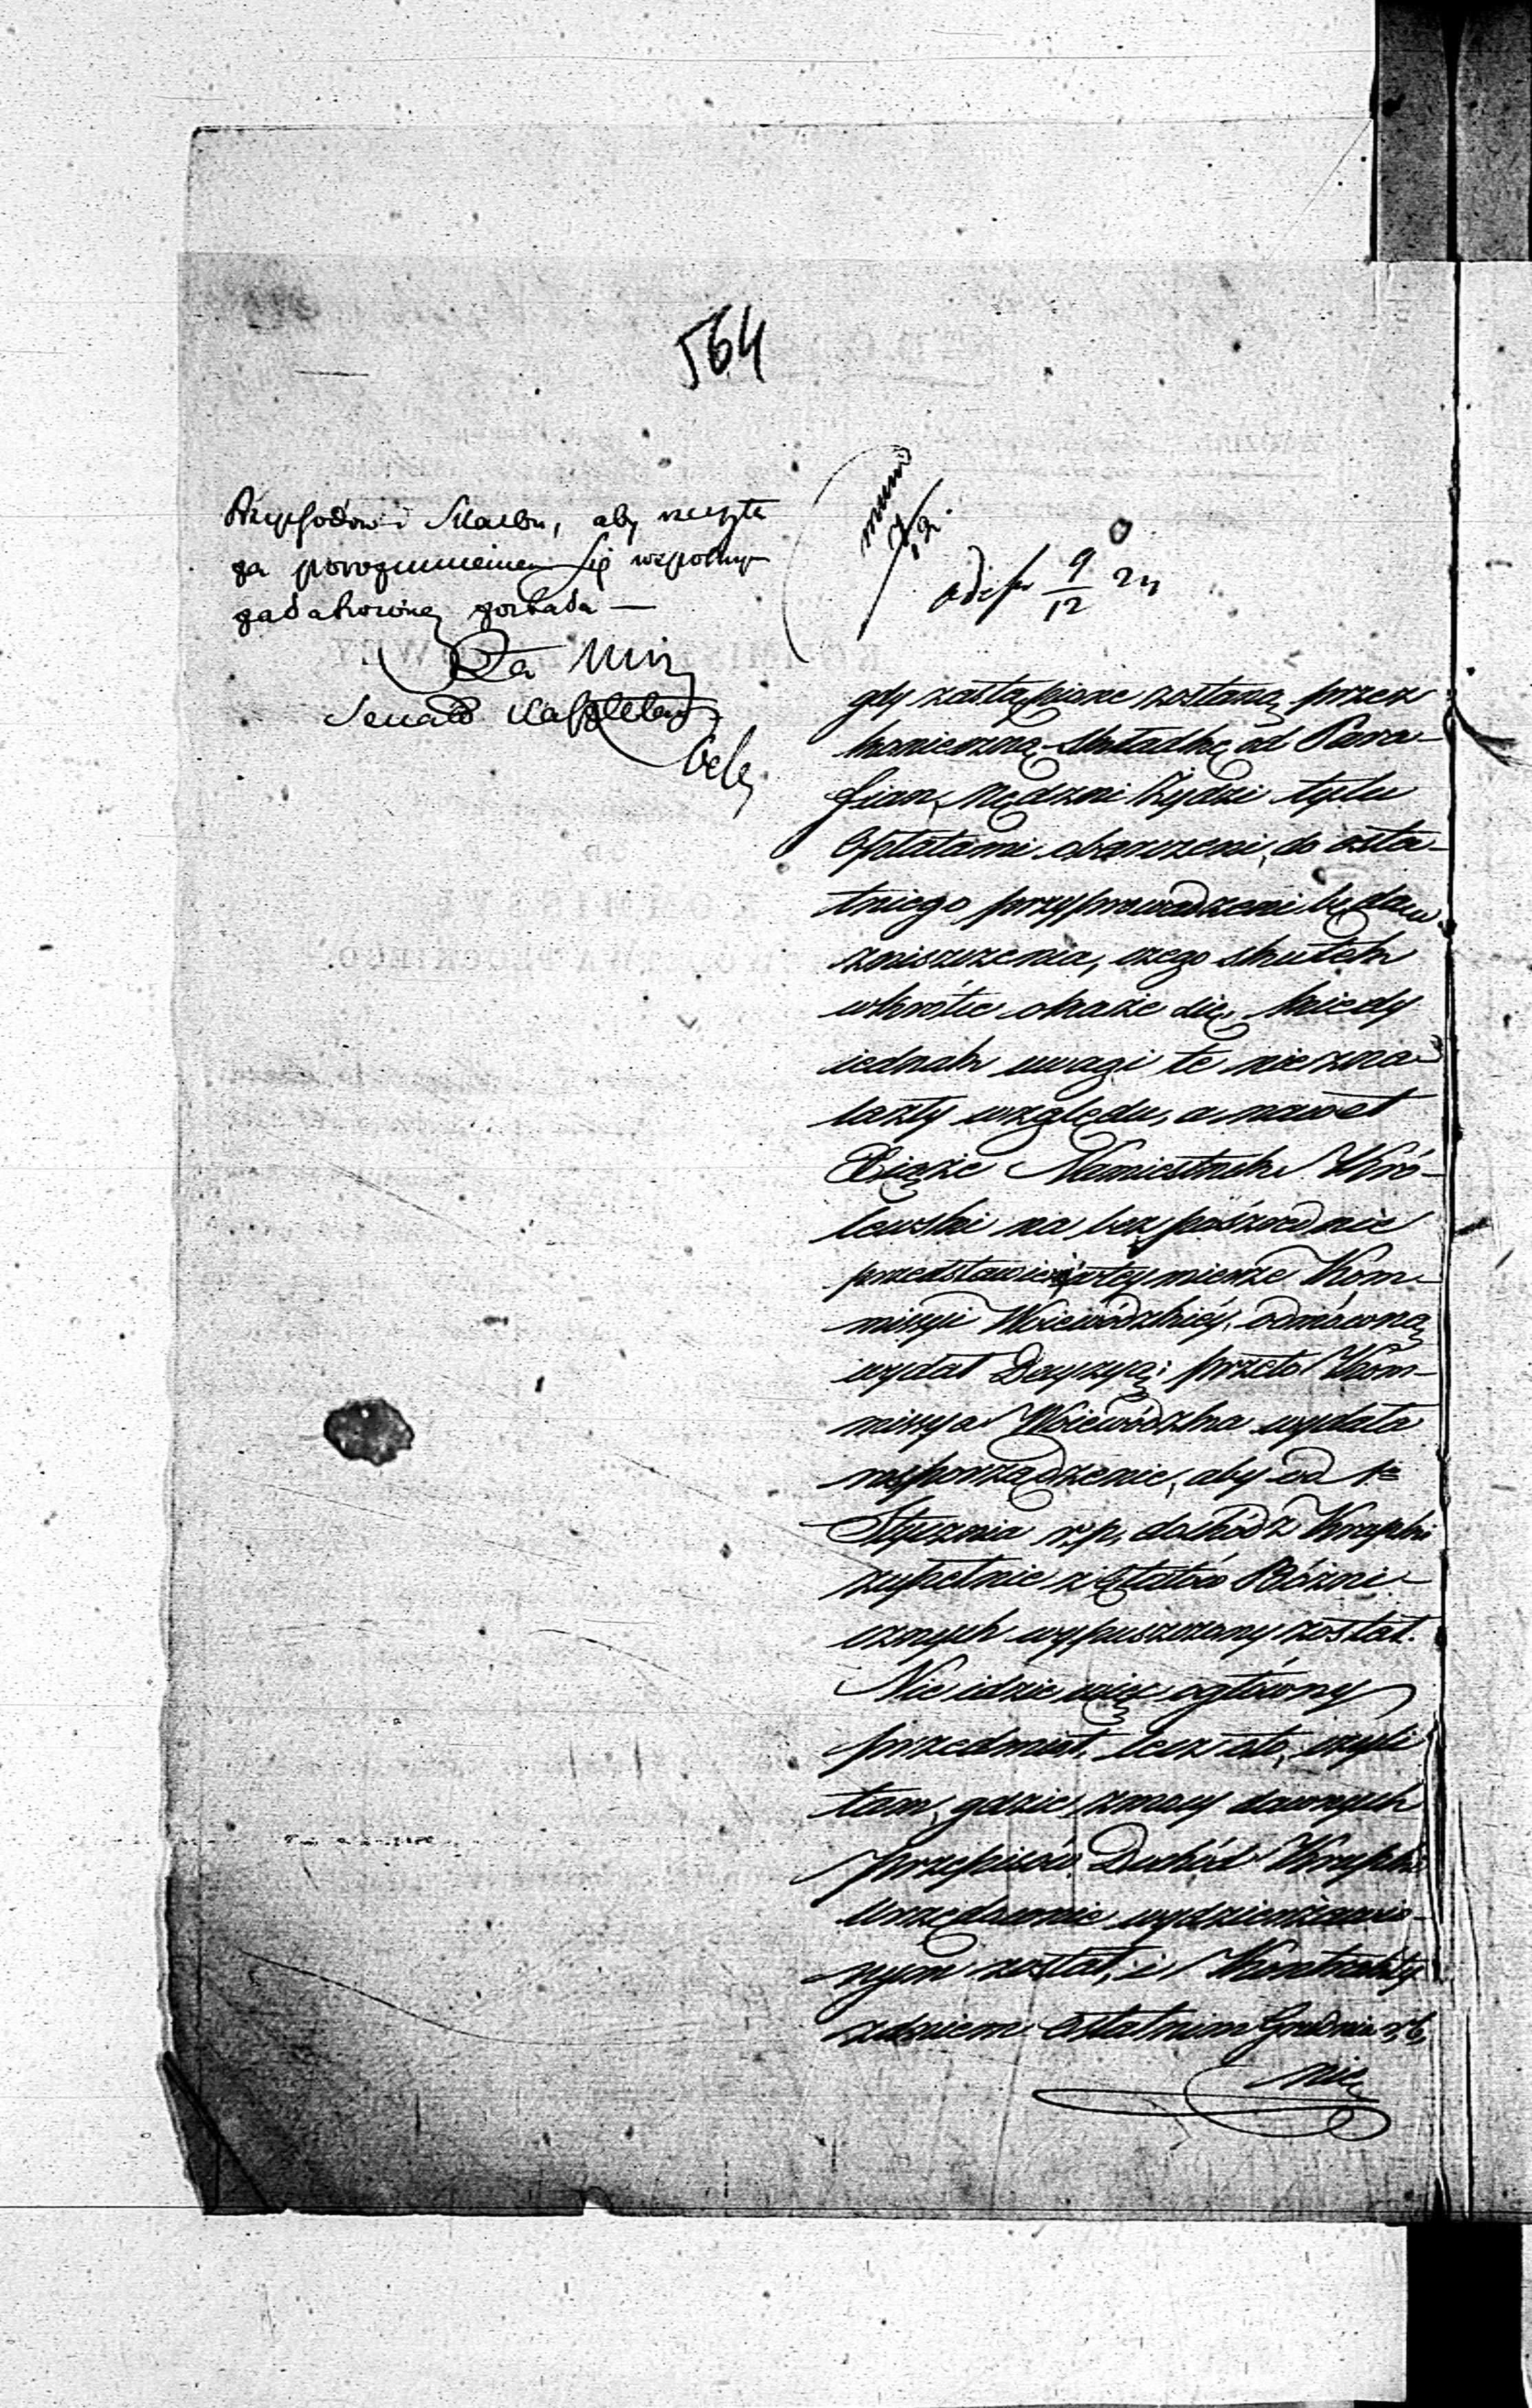 564
Przychodów i Skarbu, aby
za porozumieniem się wspólnym
załatwioną została —
Za Min
adisp 9/12 24
gdy zastąpione zostaną przez
konieczną składkę od Para-
fian, Nędzni Żydzi tylu
Opłatami obarczeni, do osta-
tniego przyprowadzeni będą
zniszczenia, czego skutek
wkrótce okaże się, kiedy
iednak uwagi te nie zna-
lazły względu, a nawet
Xiąże Namiestnik Kró-
lewski na bezpośrzednie
przedstawienie w tey mierze Kom-
missyi Woiewódzkiéy, odmówną
wydał Decyzyą; przeto Kom-
missya Woiewódzka wydała
rosporządzenie, aby od 1o
Stycznia r. p. dochód z Krupki
zupełnie z Etatów Bóżni-
cznych wypuszczony został.
Nie idzie więc o główny
przedmiot, lecz o to, czyli
tam, gdzie z mocy dawnych
przepisów Dochód Krupki
Urzędownie wydzierżawio-
nym został, i Kontrakty
z dniem ostatnim Grudnia r. b.
nie